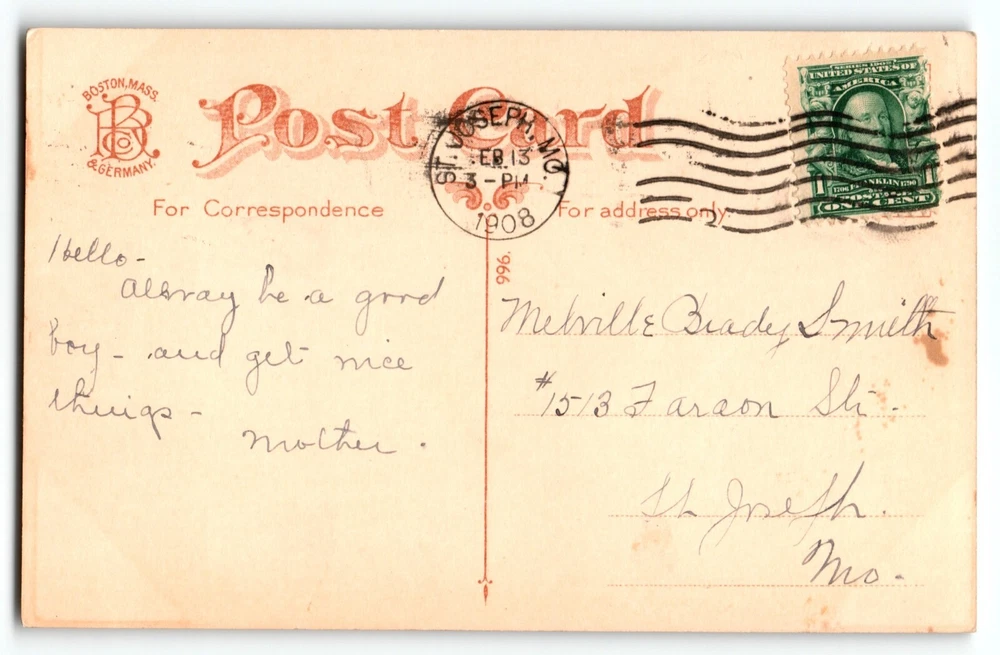 BOSTON, MASS.
BR Co
& GERMANY.
Post Card
ST. JOSEPH, MO.
FEB 13
3 - PM
1908
SERIES 1902
UNITED STATES OF
AMERICA
1706 FRANKLIN 1790
1 1
ONE CENT
For Correspondence
For address only.
996.
Hello -
Alway be a good
boy - and get nice
things -
Mother.
Melville Brady Smith
#1513 Faraon St.
St Joseph.
Mo -